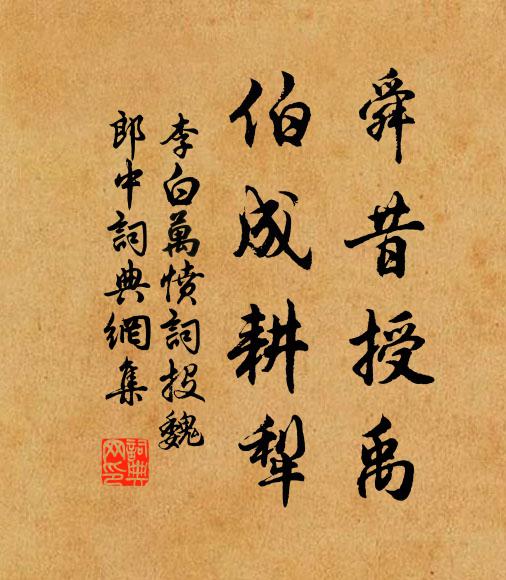 舜昔授禹
伯成耕犁
李白萬憤詞投魏
郎中詞典網集
詞典網印